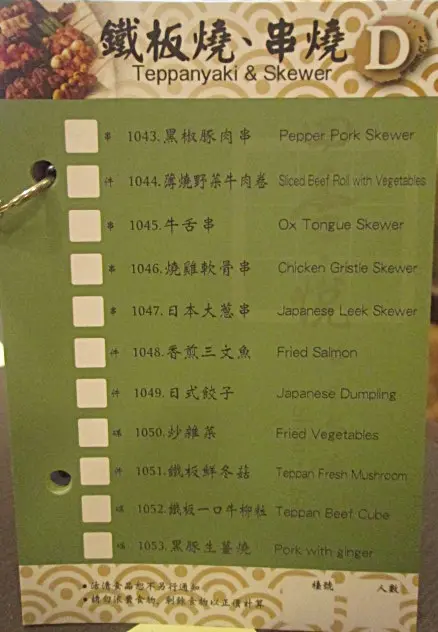 鐵板燒、串燒 D
Teppanyaki & Skewer
串 1043.黑椒豚肉串 Pepper Pork Skewer
件 1044.薄燒野菜牛肉卷 Sliced Beef Roll with Vegetables
串 1045.牛舌串 Ox Tongue Skewer
串 1046.燒雞軟骨串 Chicken Gristle Skewer
串 1047.日本大葱串 Japanese Leek Skewer
件 1048.香煎三文魚 Fried Salmon
件 1049.日式餃子 Japanese Dumpling
碟 1050.炒雜菜 Fried Vegetables
件 1051.鐵板鮮冬菇 Teppan Fresh Mushroom
碟 1052.鐵板一口牛柳粒 Teppan Beef Cube
碟 1053.黑豚生薑燒 Pork with ginger
•沽清食品恕不另行通知 檯號 人數
•請勿浪費食物，剩餘食物以正價計算